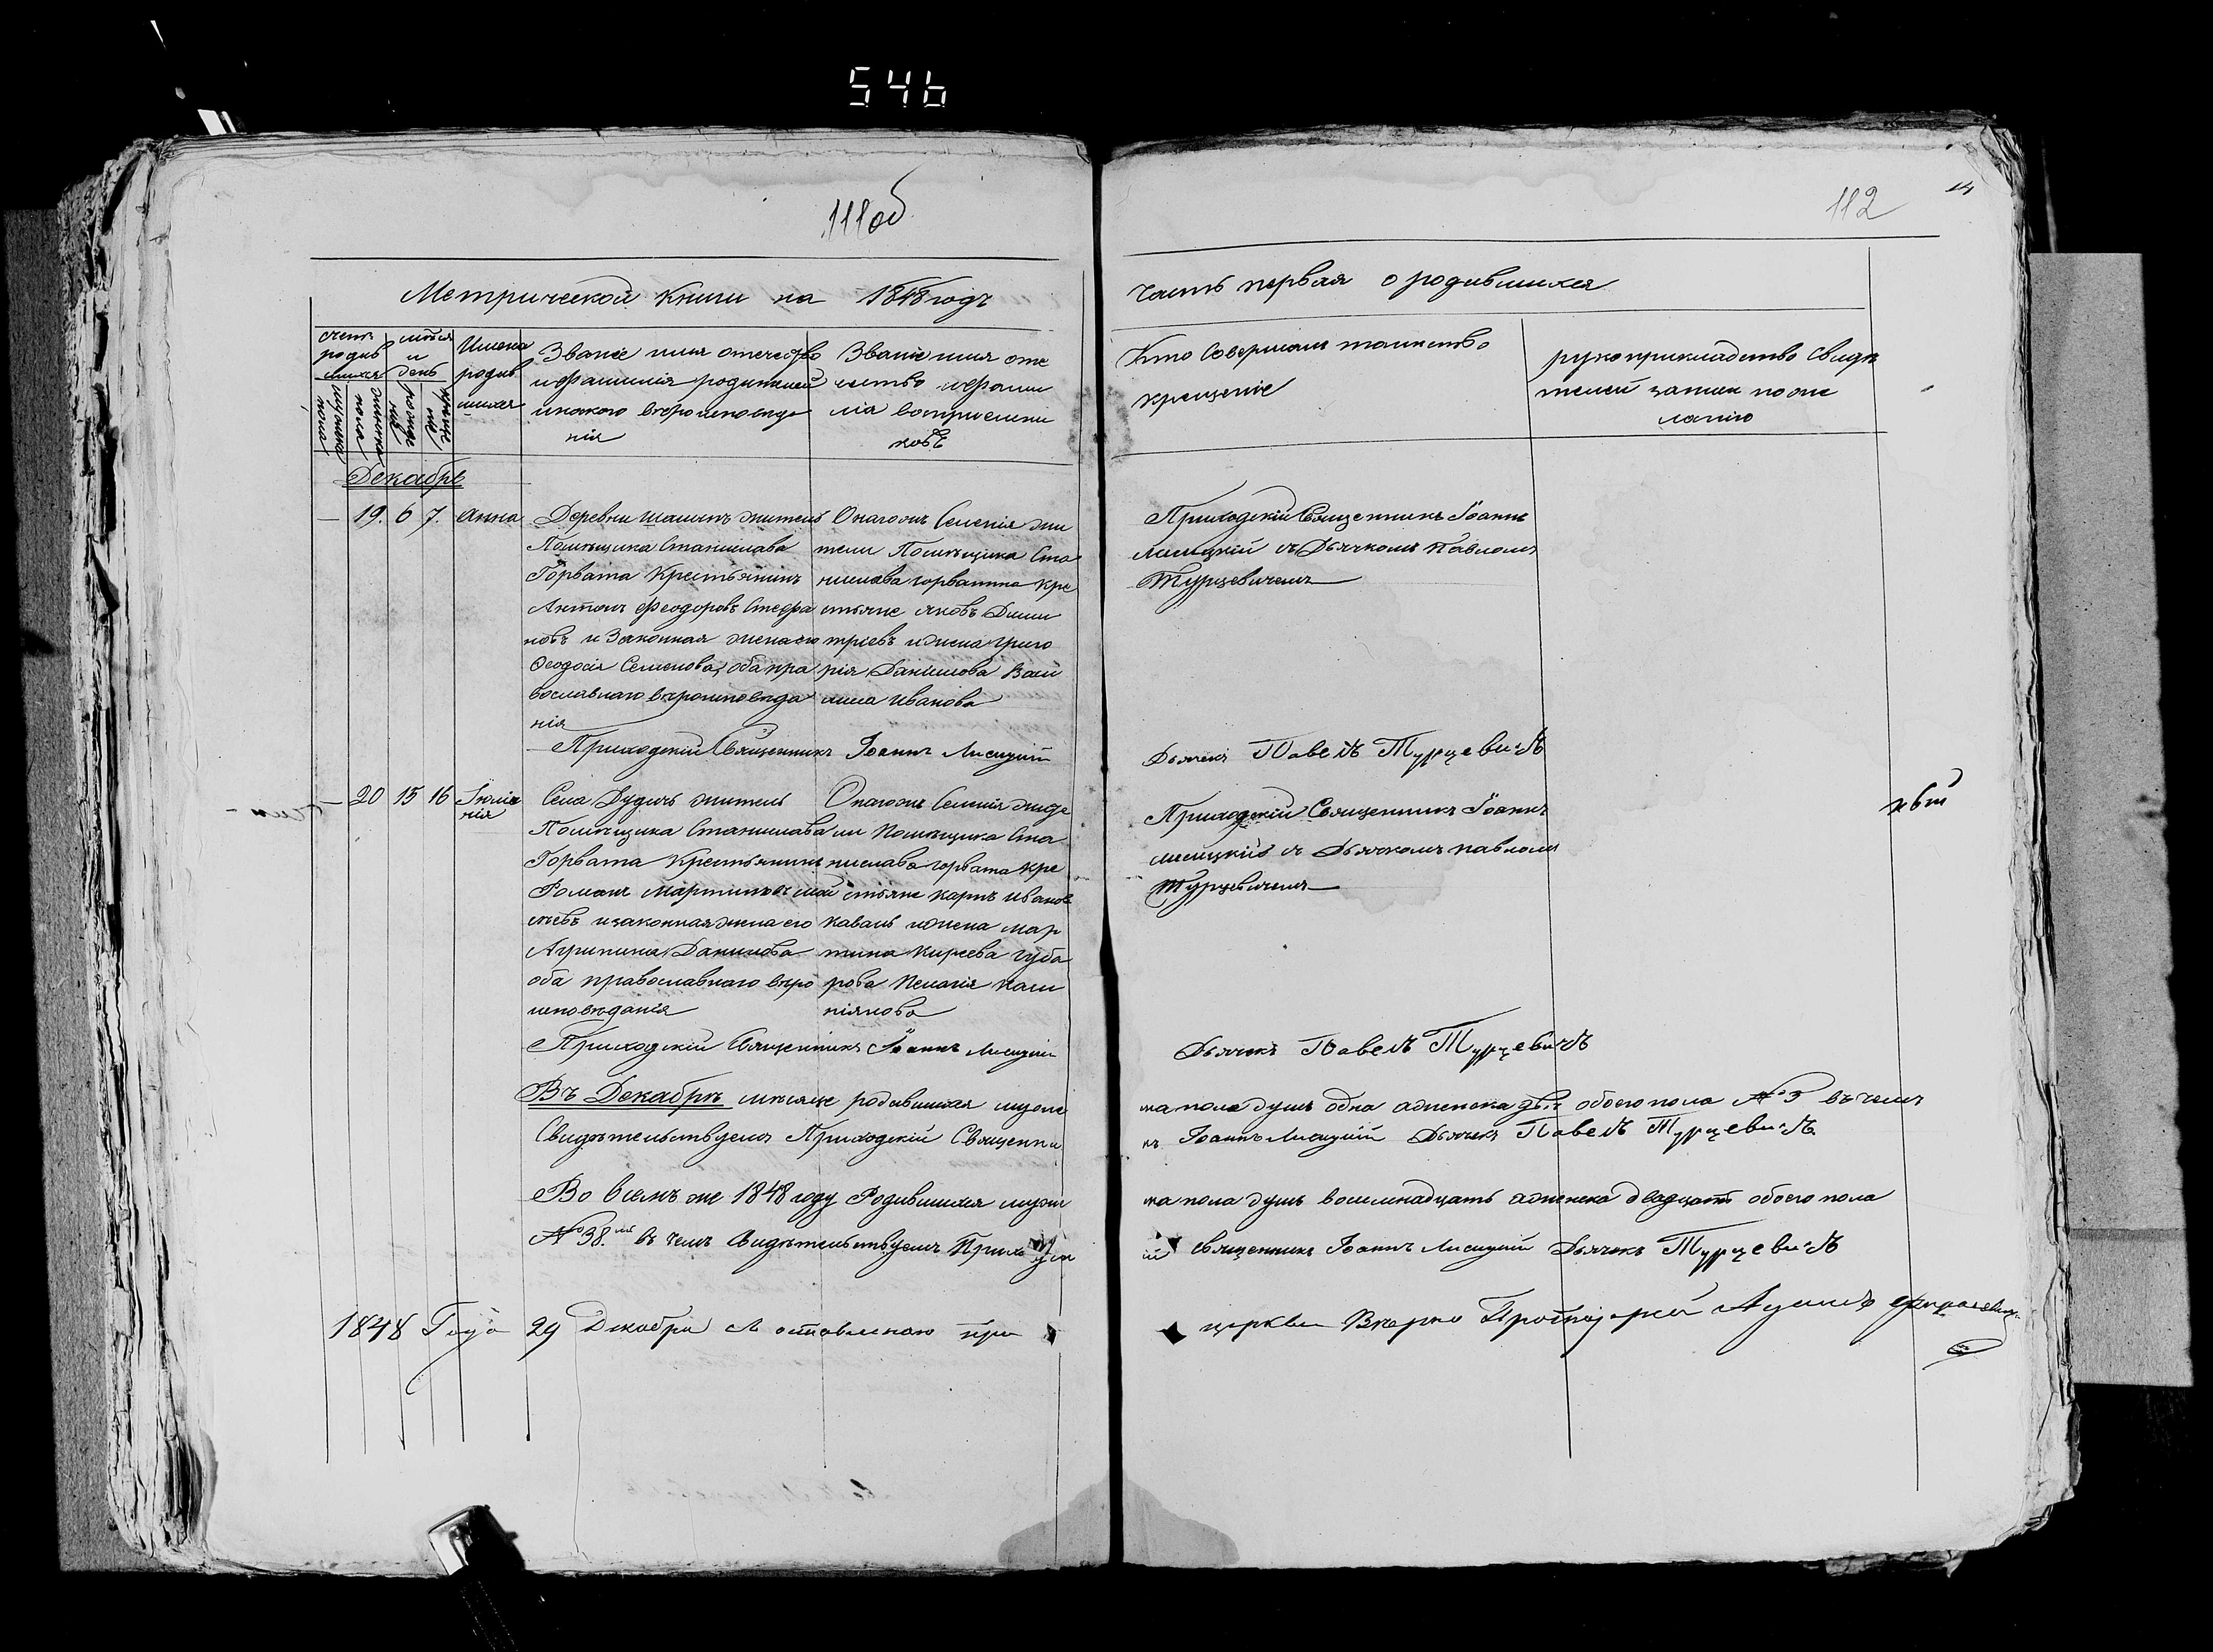 546
111об
112
14
Метрической книги на 1848 годъ
часть первая о родившихся
счетъ родив шихся
мужска пола
женска пола
мѣсяц и день
рожде нія
креще нія
Имена родив шихся
Званіе имя отечество
и фамилія родителей
и какого вѣроисповѣда
нія
Званіе имя оте
чество и фами
лія воспріемни
ковъ
Кто совершалъ таинство
крещенія
рукоприкладство свидѣ
телей записи по же
ланію
Декабрь
— 19. 6 7. Анна
Деревни житель
Помѣщика Станислава
Горвата Крестьянинъ
Антонъ Феодоровъ Стефа
новъ и Законная жена его
Феодосія Семенова, оба пра
вославнаго вѣроисповѣда
нія
Онагожъ Селенія жи
тели Помѣщика Ста
нислава Горватта кре
стьяне Яковъ Дими
тріевъ и жена Григо
рія Данилова Васи
лиса Иванова
Приходскій Священникъ Іоаннъ
Лисицкій съ Дьячкомъ Павломъ
Турцевичемъ
Приходскій Священникъ Іоаннъ Лисицкій
Дьячекъ Павелъ Турцевичъ
— 20 15 16 Іюліа
нія
Села Дудичъ житель
Помѣщика Станислава
Горвата Крестьянинъ
Романъ Мартиновъ
и законная жена его
Агрипина Данилова
оба православнаго вѣро
исповѣданія
Онагожъ Селенія жите
ли Помѣщика Ста
нислава Горвата кре
стьяне Карпъ Иванов
Коваль и жена Мар
тина Киреева Губа
рова Пелагія
Приходскій Священникъ Іоаннъ
Лисицкій съ Дьячкомъ Павломъ
Турцевичемъ
Приходскій Священникъ Іоаннъ Лисицкій
Дьячекъ Павелъ Турцевичъ
Въ Декабрѣ мѣсяце родившихся муже
ска пола душъ одна а женска двѣ обоего пола № 3 въ чемъ
Свидѣтельствуемъ Приходскій Священни
къ Іоаннъ Лисицкій Дьячекъ Павелъ Турцевичъ.
Во всемъ же 1848 году Родившихся муже
ска пола душъ восемнадцать а женска двадцать обоего пола
№ 38. въ чемъ Свидѣтельствуемъ Приходск
ій Священникъ Іоаннъ Лисицкій Дьячекъ Турцевичъ
1848 Года 29 Декабря съ оставленою при
церкви Вѣрно Протоіерей